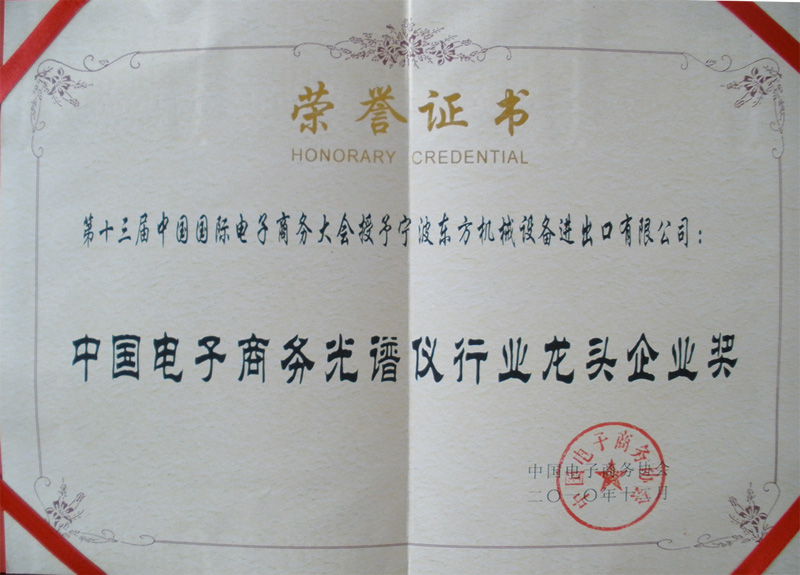 荣誉证书
HONORARY CREDENTIAL
第十三届中国国际电子商务大会授予宁波东方机械设备进出口有限公司：
中国电子商务光谱仪行业龙头企业奖
中国电子商务协会
二〇一〇年十二月
中国电子商务协会